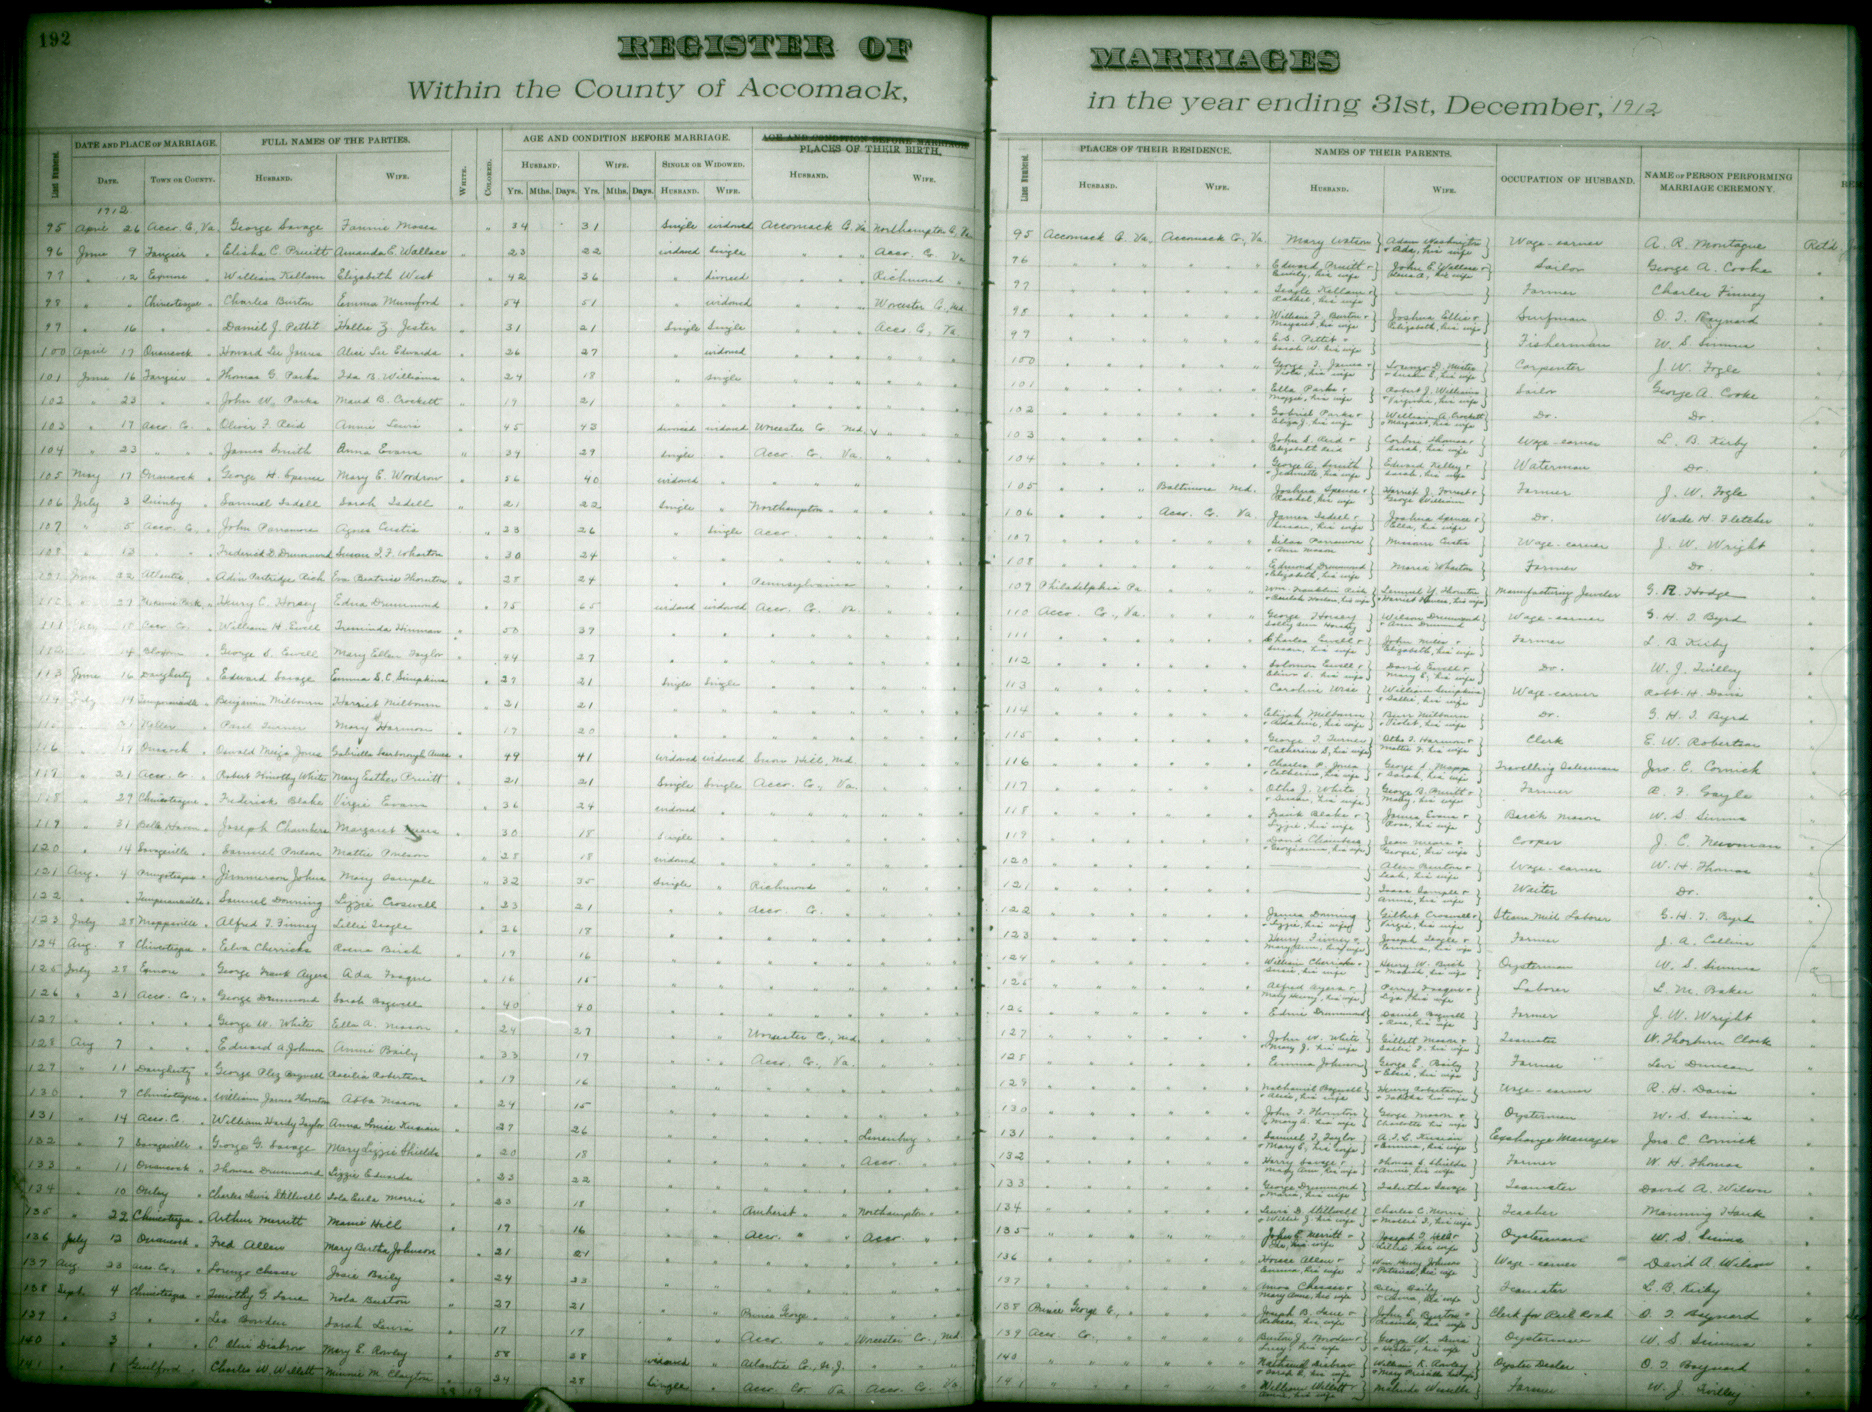 192
REGISTER OF MARRIAGES
Within the County of Accomack, in the year ending 31st, December, 1912
LINE NUMBER. DATE AND PLACE OF MARRIAGE. FULL NAMES OF THE PARTIES. WHITE. COLORED. AGE AND CONDITION BEFORE MARRIAGE. PLACES OF THEIR BIRTH.
LINE NUMBER. PLACES OF THEIR RESIDENCE. NAMES OF THEIR PARENTS. OCCUPATION OF HUSBAND. NAME OF PERSON PERFORMING MARRIAGE CEREMONY.
DATE. TOWN OR COUNTY. HUSBAND. WIFE. HUSBAND. WIFE. SINGLE OR WIDOWED. HUSBAND. WIFE.
Yrs. Mths. Days. Yrs. Mths. Days. HUSBAND. WIFE.
HUSBAND. WIFE. HUSBAND. WIFE.
1912
95 April 26 Acco Co, Va George Savage Fannie Moses " 34 31 Single widowed Accomack Co. Va Northampton Co, Va
96 June 9 Tangier " Elisha C. Pruitt Amanda E. Wallace " 23 22 widowed Single " " " Acco. Co. Va
97 " 12 Exmore " William Kellam Elizabeth West " 42 36 " divorced " " " Richmond "
98 " " Chincoteague " Charles Burton Emma Mumford " 54 51 " widowed " " " Worcester Co., Md.
99 " 16 " " Daniel J. Pettit Hallie Z. Jester " 31 21 Single Single " " " Acco Co, Va
100 April 17 Onancock " Howard Lee James Alice Lee Edwards " 26 27 " widowed
101 June 16 Tangier " Thomas G. Parks Ida B. Williams " 24 18 " single
102 " 23 " " John W. Parks Maud B. Crockett " 19 21
103 " 17 Acco. Co. " Oliver F. Reid Annie Lewis " 45 43 divorced widowed Worcester Co. Md.
104 " 23 " " James Smith Anna Evans " 34 29 single " Acco. Co. Va
105 May 17 Onancock " George H. Spence Mary E. Woodrow " 56 40 widowed
106 July 3 Quinby " Samuel Isdell Sarah Isdell " 21 22 Single " Northampton
107 " 5 Acco. Co. " John Parramore Agnes Custis " 23 26 " Single Acco
108 " 12 " " Frederick D. Drummond Susan T. F. Wharton " 30 24
June 22 Atlantic " Adin Partridge Rich Eva Beatrice Thornton " 28 24 " " Pennsylvania
" 27 Henry C. Horsey Edna Drummond " 75 65 widowed widowed Acco. Co. Va
111 Acco. Co. William H. Ewell Treminda Hinman " 50 37
14 Bloxom " George S. Ewell Mary Ellen Taylor " 44 27
113 June 16 Daugherty " Edward Savage Emma S. C. Simpkins " 27 21 Single Single
114 July 14 Temperanceville " Benjamin Milbourn Harriet Milbourn " 31 21
31 Keller " Paul Turner Mary Harmon " 19 20
116 " 19 Onancock " Oswald Meiga Jones Gabriella Scarborough Ames " 49 41 widowed widowed Snow Hill, Md
117 " 21 Acco Co " Robert Timothy White Mary Esther Pruitt " 21 21 Single Single Acco. Co, Va
118 " 29 Chincoteague " Frederick Blake Virgie Evans " 36 24 widowed
119 " 31 Belle Haven " Joseph Chambers Margaret " 30 18 Single
120 " 14 Savageville " Samuel Poulson Mattie Poulson " 28 18 widowed
121 Aug. 4 Pungoteague " Jimmerson Johns Mary Sample " 32 35 Single " Richmond
122 " " Temperanceville " Samuel Downing Lizzie Croswell " 23 21 " " Acco. Co.
123 July 28 Mappsville " Alfred T. Finney Lillie Teagle " 26 18
124 Aug. 8 Chincoteague " Elva Cherricks Roena Birch " 19 16
125 July 28 Exmore " George Frank Ayers Ada Teague " 16 15
126 " 21 Acco. Co, " George Drummond Sarah Bagwell " 40 40
127 " " " " George W. White Ella A. Mason " 24 27 " " Worcester Co., Md
128 Aug 7 " " Edward A. Johnson Annie Baily " 33 19 " " Acco. Co., Va.
129 " 11 Daugherty " George Plez Bagwell Rosilia Robertson " 19 16
130 " 9 Chincoteague " William James Thornton Abba Mason " 24 15
131 " 14 Acco. Co. " William Hardy Taylor Anna Louise Kusian " 27 26 Lunenburg
132 " 7 Savageville " George G. Savage Mary Lizzie Shields " 20 18 Acco.
133 " 11 Onancock " Thomas Drummond Lizzie Edwards " 23 22
134 " 10 Onley " Charles Lewis Stillwell Iola Eula Morris " 23 18 " " Amherst " Northampton
135 " 22 Chincoteague " Arthur Merritt Mamie Hill " 19 16 " " Acco. " Acco.
136 July 12 Onancock " Fred Allen Mary Bertha Johnson " 21 21
137 Aug 23 Acco Co, " Lorenzo Chesser Josie Baily " 24 23
138 Sept. 4 Chincoteague " Timothy G. Lane Nola Burton " 27 21 " " Prince George
139 " 3 " " Lee Bowden Sarah Lewis " 19 17 " " Acco. " Worcester Co., Md
140 " 3 " " C. Elvin Disbrow Mary E. Rowley " 58 38 widowed " Atlantic Co., N.J.
141 " 1 Guilford " Charles W. Willett Minnie M. Clayton " 34 28 Single " Acco. Co. Va Acco. Co. Va
95 Accomack Co. Va, Accomack Co., Va. Mary Watson Adam Washington & Ada, his wife Wage-earner A. R. Montague Ret'd
96 Edward Pruitt & Emily, his wife John E. Wallace & his wife Sailor George A. Cooke
97 Teagle Kellam & Rachel, his wife Farmer Charles Finney
98 William T. Burton & Margaret, his wife Joshua Ellis & Elizabeth, his wife Surfman O. T. Baynard
99 E. S. Pettit & Sarah W. his wife Fisherman W. S. Simms
100 George T. James & his wife Lorenzo D. his wife Carpenter J. W. Fogle
101 Ella Parks & Maggie, his wife Robert J. Williams & Virginia, his wife Sailor George A. Cooke
102 Gabriel Parks & Eliza J. his wife William A. Crockett & Margaret, his wife Do. Do.
103 John S. Reid & Elizabeth Reid Corbin Thomas & Sarah, his wife Wage-earner L. B. Kirby
104 George A. Smith & Jeannette, his wife Edward Kelley & Sarah, his wife Waterman Do
105 Baltimore Md. Joshua Spence & Rachel, his wife Harriet J. Forrest & George William Farmer J. W. Fogle
106 Acco. Co. Va. James Isdell & Susan, his wife Joshua Spence & Ella, his wife Do. Wade H. Fletcher
107 Silas Parramore & Ann Mason Missouri Custis Wage-earner J. W. Wright
108 Edmond Drummond & Elizabeth, his wife Maria Wharton Farmer Do.
109 Philadelphia Pa. Wm. Franklin Rich his wife Samuel Y. Thornton his wife Manufacturing Jeweler G. R. Hodge
110 Acco. Co., Va. George Horsey Sally Ann Horsey Wilson Drummond & Ann Drummond Wage-earner G. H. T. Byrd
111 Charles Ewell & Susan, his wife John Miles & Elizabeth, his wife Farmer L. B. Kirby
112 Solomon Ewell & his wife David Ewell & Mary E, his wife Do. W. J. Twilley
113 Caroline Wise William Simpkins & Sallie, his wife Wage-earner Robt. H. Davis
114 Elijah Milbourn & Adaline, his wife Burr Milbourn & Violet, his wife Do. G. H. T. Byrd
115 George T. Turner & Catherine S, his wife Otho T. Harmon & Mollie F. his wife Clerk E. W. Robertson
116 Charles P. Jones & Catherine, his wife George S. Mapp & Sarah, his wife Travelling Salesman Jno. C. Cornick
117 Otho J. White & Susan, his wife George B. Pruitt & Mary, his wife Farmer R. F. Gayle
118 Frank Blake & Lizzie, his wife James Evans & Rosa, his wife Brick Mason W. S. Simms
119 David Chambers & Georgianna, his wife Jean Mears & Georgie, his wife Cooper J. C. Newman
120 Alen Benton & Leah, his wife Wage-earner W. H. Thomas
121 Isaac Sample & Annie, his wife Waiter Do.
122 James Downing & Lizzie, his wife Gilbert Croswell & Vergie, his wife Steam Mill Laborer G. H. T. Byrd
123 Henry Finney & Mary Ann, his wife Joseph Teagle & Emma, his wife Farmer J. A. Collins
124 William Cherricks & Susan, his wife Henry W. Birch & his wife Oysterman W. S. Simms
125 Alfred Ayers & Mary Henry, his wife Perry Teague & Liza, his wife Laborer L. M. Baker
126 Edmie Drummond Daniel Bagwell & Rose, his wife Farmer J. W. Wright
127 John W. White & Mary J. his wife Gillett Mason & Sallie F. his wife Teamster W. Thorburn Clark
128 Emma Johnson George E. Baily & Elsie, his wife Farmer Levi Duncan
129 Nathaniel Bagwell & Alice, his wife Henry Robertson & Tabitha, his wife Wage-earner R. H. Davis
130 John T. Thornton & Mary A. his wife George Mason & Charlotte his wife Oysterman W. S. Simms
131 Samuel T. Taylor & Mary E, his wife A. T. C. Kusian & Emma, his wife Exchange Manager Jno. C. Cornick
132 Harry Savage & Mary Ann, his wife Thomas S. Shields & Annie, his wife Farmer W. H. Thomas
133 George Drummond & Maria, his wife Tabitha Savage Teamster David A. Wilson
134 Lewis D. Stillwell & Willie J. his wife Charles C. Morris & Mollie F., his wife Teacher Manning
135 John E. Merritt & his wife Joseph T. Hill & Lillie, his wife Oysterman W. S. Simms
136 Horace Allen & Emma, his wife Wm. Henry Johnson & his wife Wage-earner David A. Wilson
137 Amos Chesser & Mary Anne, his wife Riley Baily & Anna, his wife Teamster L. B. Kirby
138 Prince George Co., Joseph B. Lane & Rebecca, his wife John E. Burton & his wife Clerk for Rail Road O. T. Baynard
139 Acco Co., Burton J. Bowden & Lucy, his wife George W. Lewis & Hester, his wife Oysterman W. S. Simms
140 Nathaniel Disbrow & Sarah C, his wife William K. Rowley & Mary Priscilla his wife Oyster Dealer O. T. Baynard
141 William Willett & Annie, his wife Malinda Wessells Farmer W. J. Twilley
28 19